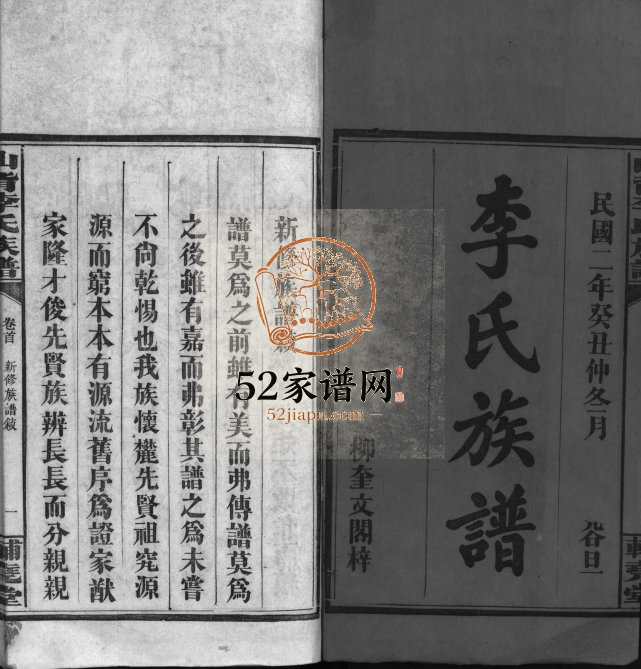 民國二年癸丑仲冬月 谷旦
李氏族譜
柳奎文閣梓
新修族譜敍
譜莫爲之前雖有美而弗傳譜莫爲
之後雖有嘉而弗彰其譜之爲未嘗
不尙乾惕也我族懷麓先賢祖究源
源而窮本本有源流舊序爲證家猷
家隆才俊先賢族辨長長而分親親
李氏族譜
卷首 新修族譜敍 一
輔堯堂
52家谱网
52jiapu.com